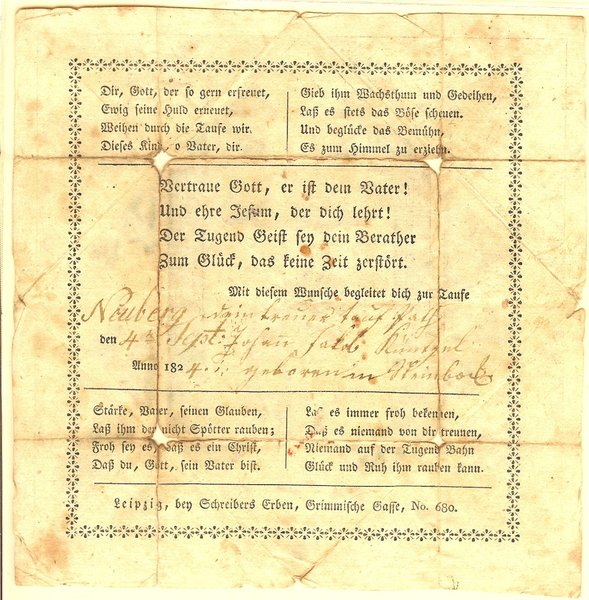 Dir, Gott, der so gern erfreuet,
Ewig seine Huld erneuet,
Weihen durch die Taufe wir
Dieses Kind, o Vater, dir.
Gieb ihm Wachsthum und Gedeihen,
Laß es stets das Böse scheuen.
Und beglücke das Bemühn,
Es zum Himmel zu erziehn.
Vertraue Gott, er ist dein Vater!
Und ehre Jesum, der dich lehrt!
Der Tugend Geist sey dein Berather
Zum Glück, das keine Zeit zerstört.
Mit diesem Wunsche begleitet dich zur Taufe
Neuberg dein treuer tauf path
den 4n Sept: Johann Jakob
Anno 1824. geboren in
Stärke, Vater, seinen Glauben,
Laß ihm der nicht Spötter rauben;
Froh sey es, daß es ein Christ,
Daß du, Gott, sein Vater bist.
Laß es immer froh bekennen,
Daß es niemand von dir trennen,
Niemand auf der Tugend Bahn
Glück und Ruh ihm rauben kann.
Leipzig, bey Schreibers Erben, Grimmische Gasse, No. 680.